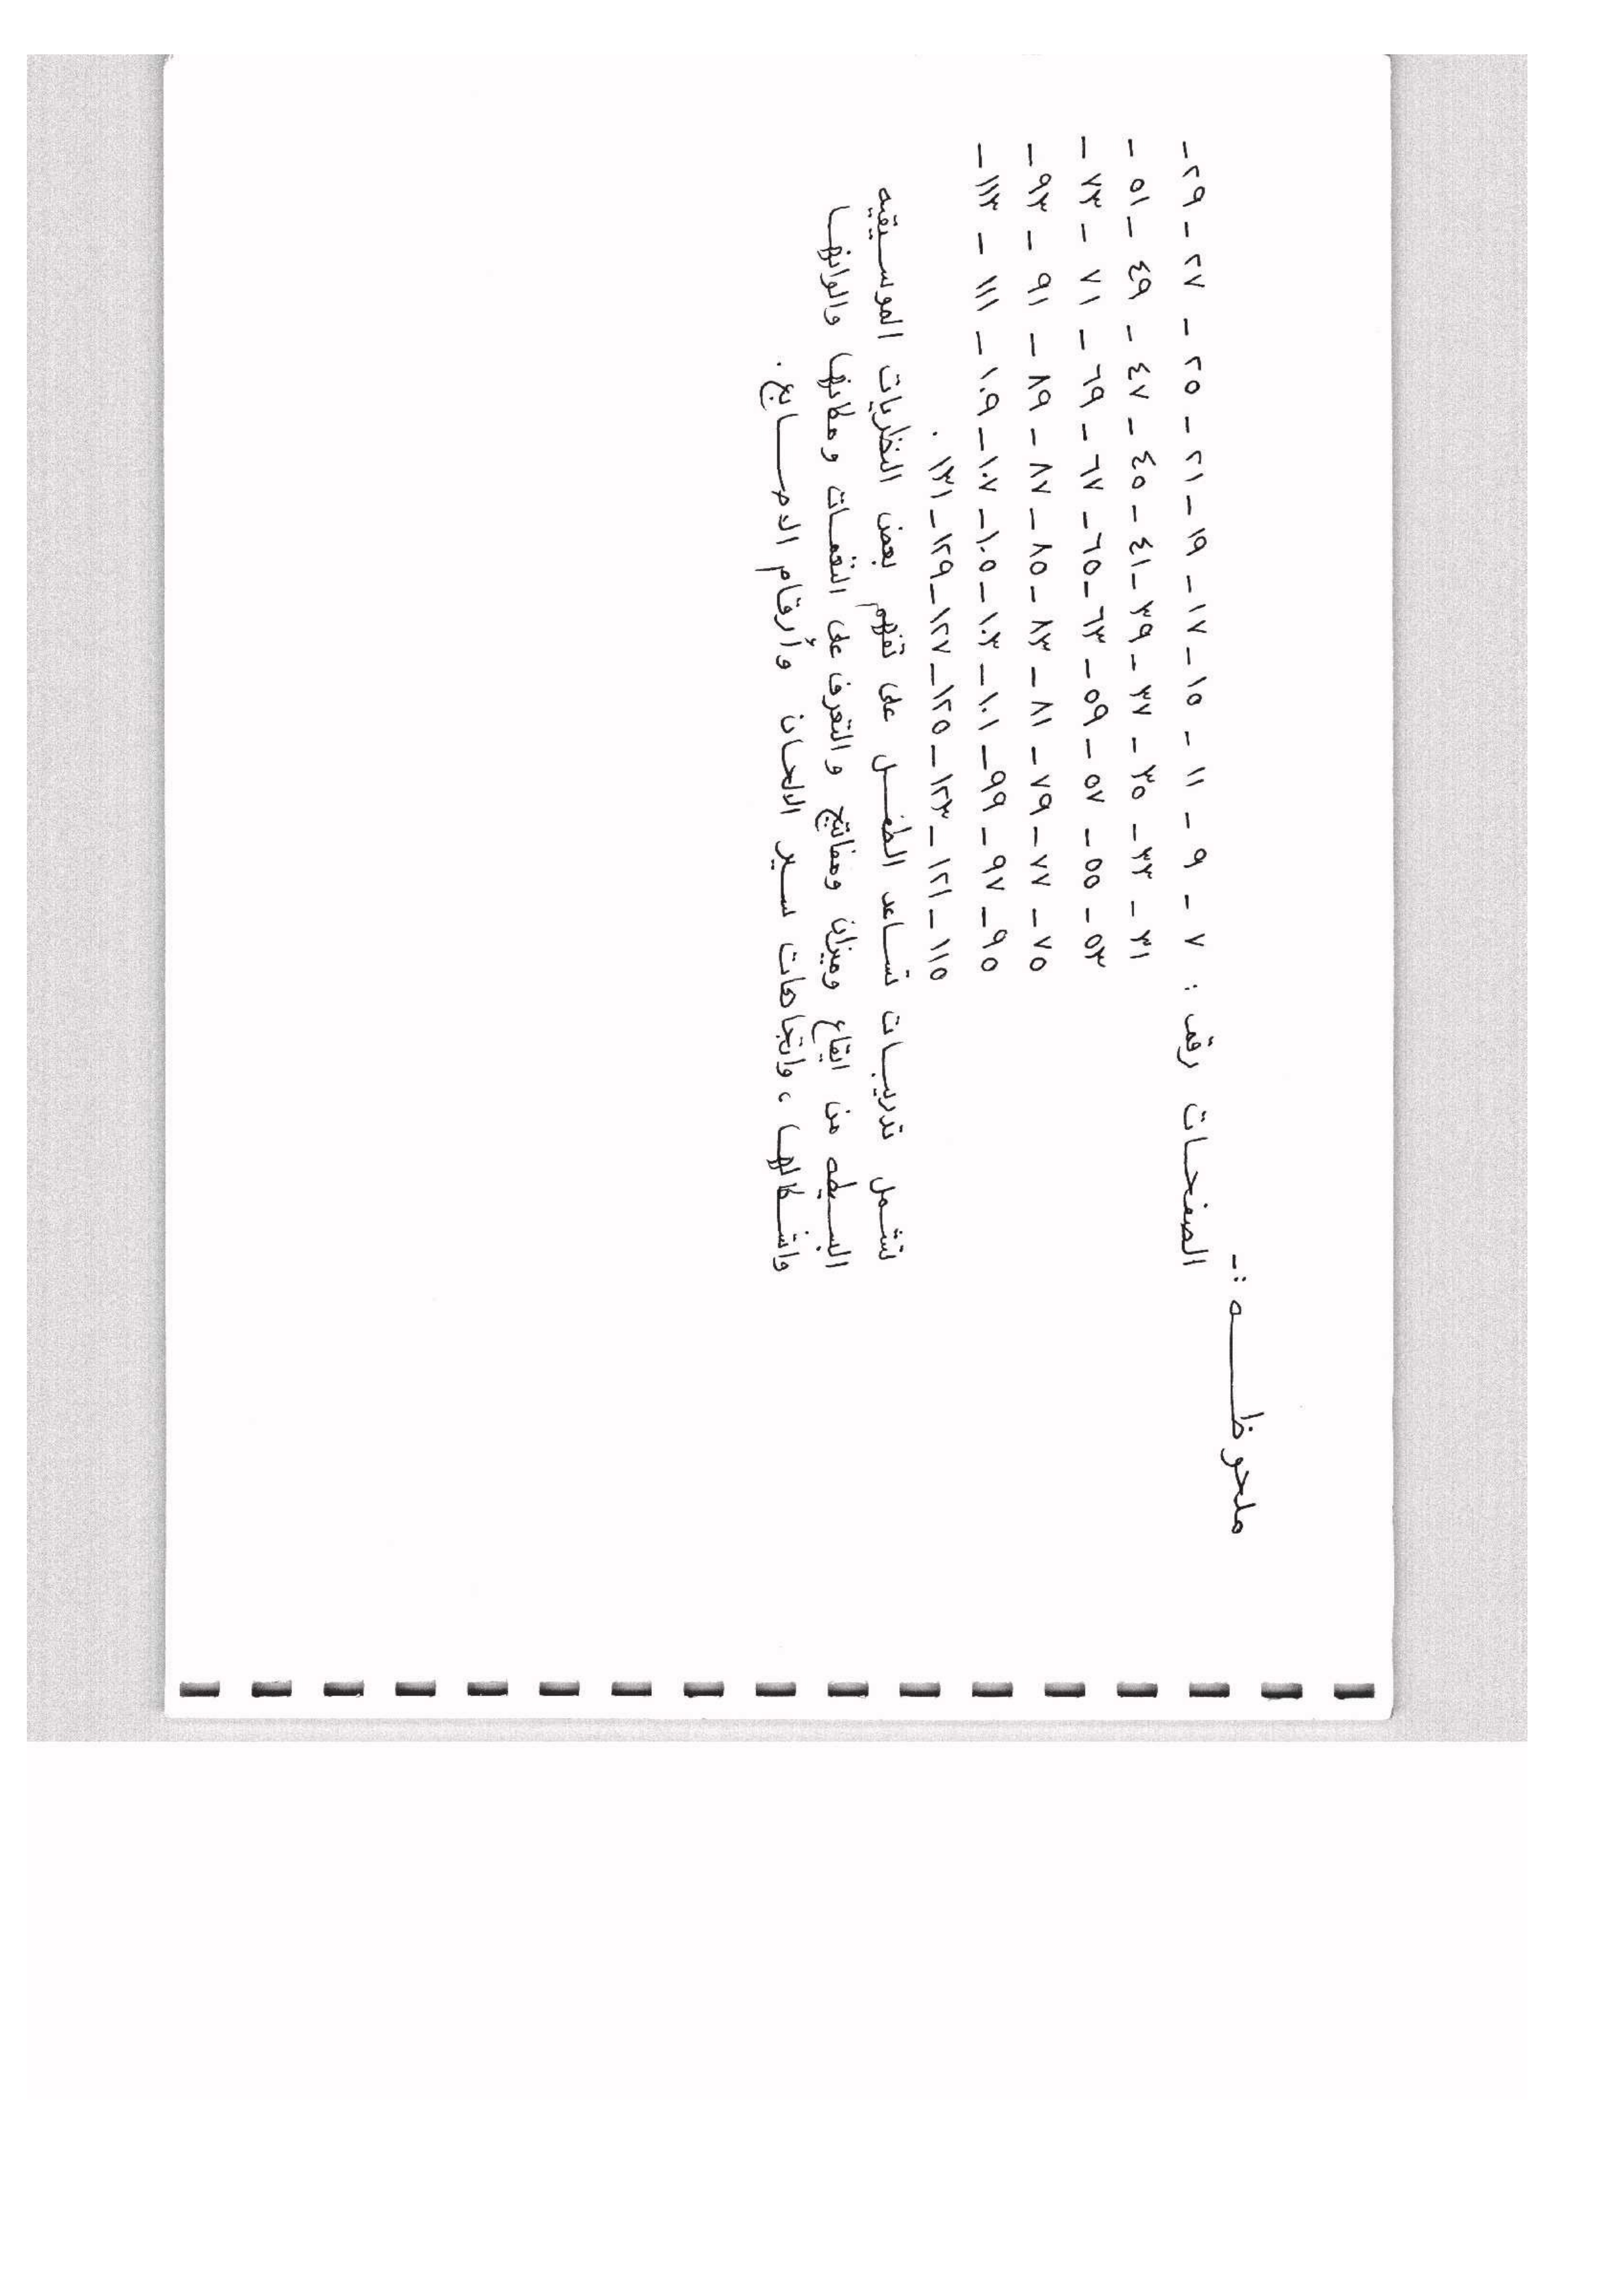 ملحوظـــــه :ـ
الصفحـات رقم : ٧ ـ ٩ ـ ١١ ـ ١٥ ـ ١٧ ـ ١٩ ـ ٢١ ـ ٢٥ ـ ٢٧ ـ ٢٩ ـ
٣١ ـ ٣٣ ـ ٣٥ ـ ٣٧ ـ ٣٩ ـ ٤١ ـ ٤٥ ـ ٤٧ ـ ٤٩ ـ ٥١ ـ
٥٣ ـ ٥٥ ـ ٥٧ ـ ٥٩ ـ ٦٣ ـ ٦٥ ـ ٦٧ ـ ٦٩ ـ ٧١ ـ ٧٣ ـ
٧٥ ـ ٧٧ ـ ٧٩ ـ ٨١ ـ ٨٣ ـ ٨٥ ـ ٨٧ ـ ٨٩ ـ ٩١ ـ ٩٣ ـ
٩٥ ـ ٩٧ ـ ٩٩ ـ ١٠١ ـ ١٠٣ ـ ١٠٥ ـ ١٠٧ ـ ١٠٩ ـ ١١١ ـ ١١٣ ـ
١١٥ ـ ١٢١ ـ ١٢٣ ـ ١٢٥ ـ ١٢٧ ـ ١٢٩ ـ ١٣١ .
تشمل تدريبـات تسـاعد الطفـل على تفهم بعض النظريات الموسـيقيه
البسـيطه من ايقاع وميزان ومفاتيح والتعرف على النغمـات ومكانها والوانهـا
واشـكالهـا ، واتجاهات سـير الالحـان وأرقام الاصـــابع .